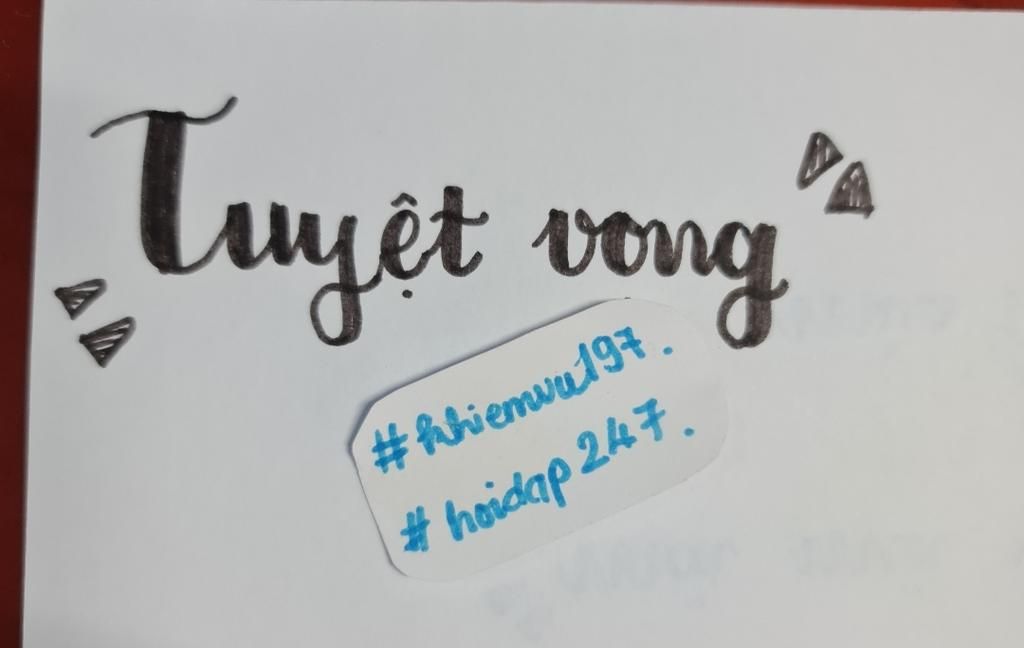 Tuyệt vong
#nhiemvu197.
#hoidap247.